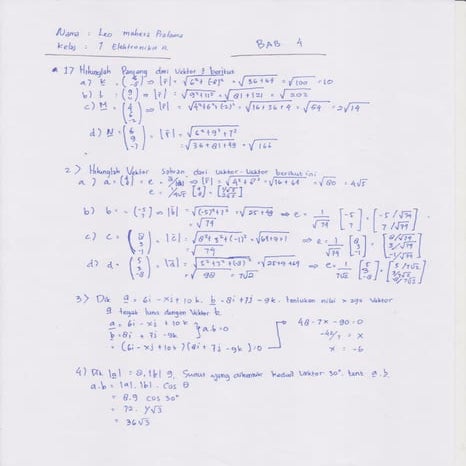 Nama : Leo mahesa Pratama
Kelas : 1 Elektronika A
BAB 4
1) Hitunglah Panjang dari Vektor berikut
a) r = (6 -8) ⇒ |r| = √6²+(-8)² = √36+64 = √100 = 10
b) b = (9 11) ⇒ |r| = √9²+11² = √81+121 = √202
c) M = (4 6 -2) ⇒ |r| = √4²+6²+(-2)² = √16+36+4 = √54 = 2√14
d) M = (6 9 -7) = |r| = √6²+9²+7²
= √36+81+49 = √166
2) Hitunglah Vektor Satuan dari vektor-vektor berikut ini
a) a = (4 8) = e = a/|a| ⇒ |r| = √4²+8² = √16+64 = √80 = 4√5
b) b = (-5 7) = |b| = √(-5)²+7² = √25+49 ⇒ e = 1/√74 [-5 7] = [-5/√74 7/√74]
= √74
c) c = (8 3 -1) = |c| = √8²+3²+(-1)² = √64+9+1 ⇒ e = 1/√74 [8 3 -1] = [8/√74 3/√74 -1/√74]
= √74
= √98 = 7√2
3) Dik a = 6i - xj + 10k. b = 8i + 7j - 9k. tentukan nilai x agar Vektor
a tegak lurus dengan Vektor b
a = 6i - xj + 10k
b = 8i + 7j - 9k } a.b = 0
= (6i - xj + 10k)(8i + 7j - 9k) = 0
48 - 7x - 90 = 0
-42/7 = x
x = -6
4) Dik |a| = 8, |b| 9. Sudut yang dibentuk kedua Vektor 30°. tent a.b.
a.b = |a|.|b|. Cos θ
= 8.9 cos 30°
= 72. ½√3
= 36√3